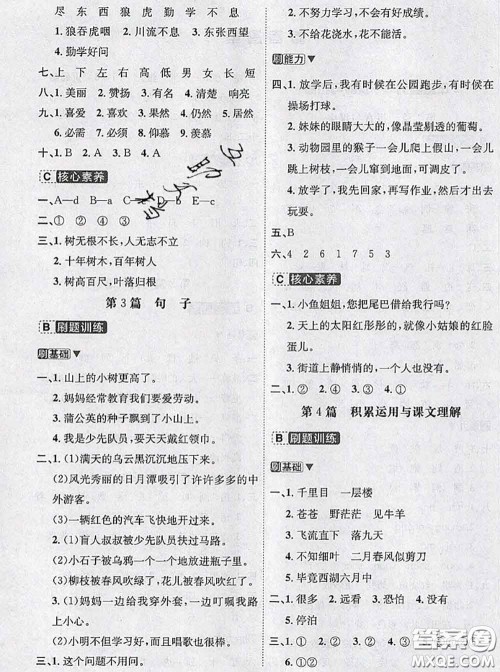 尽 东 西 狼 虎 勤 学 不 息
1. 狼吞虎咽 2. 川流不息 3. 东张西望
4. 勤学好问
七、上 下 左 右 高 低 男 女 长 短
八、1. 美丽 2. 赞赏 3. 有名 4. 清楚 明亮
九、1. 喜爱 2. 喜欢 3. 果然 4. 仍然 5. 居然
6. 必需 7. 必须 8. 仰慕 9. 羡慕
十、1. B 2. A 3. B 4. A
C 核心素养
一、A—d B—a C D—b E—c
二、① ② ④
三、1. 树无根不长，人无志不立
2. 十年树木，百年树人
3. 树高百尺，叶落归根
第 3 篇 句 子
B 刷题训练
刷基础
一、1. 山上的小树更高了。
2. 妈妈经常教育我们要爱劳动。
3. 蒲公英的种子飘到了小山上。
4. 我是少先队员，要天天戴红领巾。
二、1. (1)满天的乌云黑沉沉地压下来。
(2)风光秀丽的日月潭吸引了许许多多的中
外游客。
(3)一辆红色的汽车飞快地开过来。
2. (1)盲人叔叔被少先队员扶过马路。
(2)小石子被乌鸦一个一个地放进瓶子里。
(3)柳枝被春风吹绿了，花儿被春风吹红了。
3. (1)妈妈一边给我穿外套，一边大声地叮
嘱我。
(2)小明不但学习好，而且唱歌也很棒。
三、1. 这个问题不用问。
2. 不努力学习，不会有好成绩。
3. 不给花浇水，花儿不能开放。
刷能力
四、1. 放学后，我有时候在公园跑步，有时候在
操场打球。
2. 妹妹的眼睛大大的，像晶莹剔透的葡萄。
3. 动物园里的猴子一会儿爬上假山，一会儿
跳上树枝，一会儿窜到地面，可调皮了。
4. 放学了，我先回家，再写作业，然后出去
玩儿。
五、B
六、4 2 6 1 7 5 3
C 核心素养
一、1. 小鱼姐姐，您把尾巴借给我行吗？
2. 天上的太阳红彤彤的，就像小姑娘的红脸
蛋儿。
3. 街道上静悄悄的，一个人也没有。
二、1. ② 2. ④ 3. ③ 4. ①
第 4 篇 积累运用与课文理解
B 刷题训练
刷基础
一、1. 千里目 一层楼
2. 苍苍 野茫茫 见牛羊
3. 飞流直下 落九天
4. 不知细叶 二月春风似剪刀
5. 毕竟西湖六月中
二、1. 很高 2. 远看 3. 恐怕 4. 恐怕
5. 停泊
三、1. ① ② ④ 2. ②
答案圈
MXQE.COM